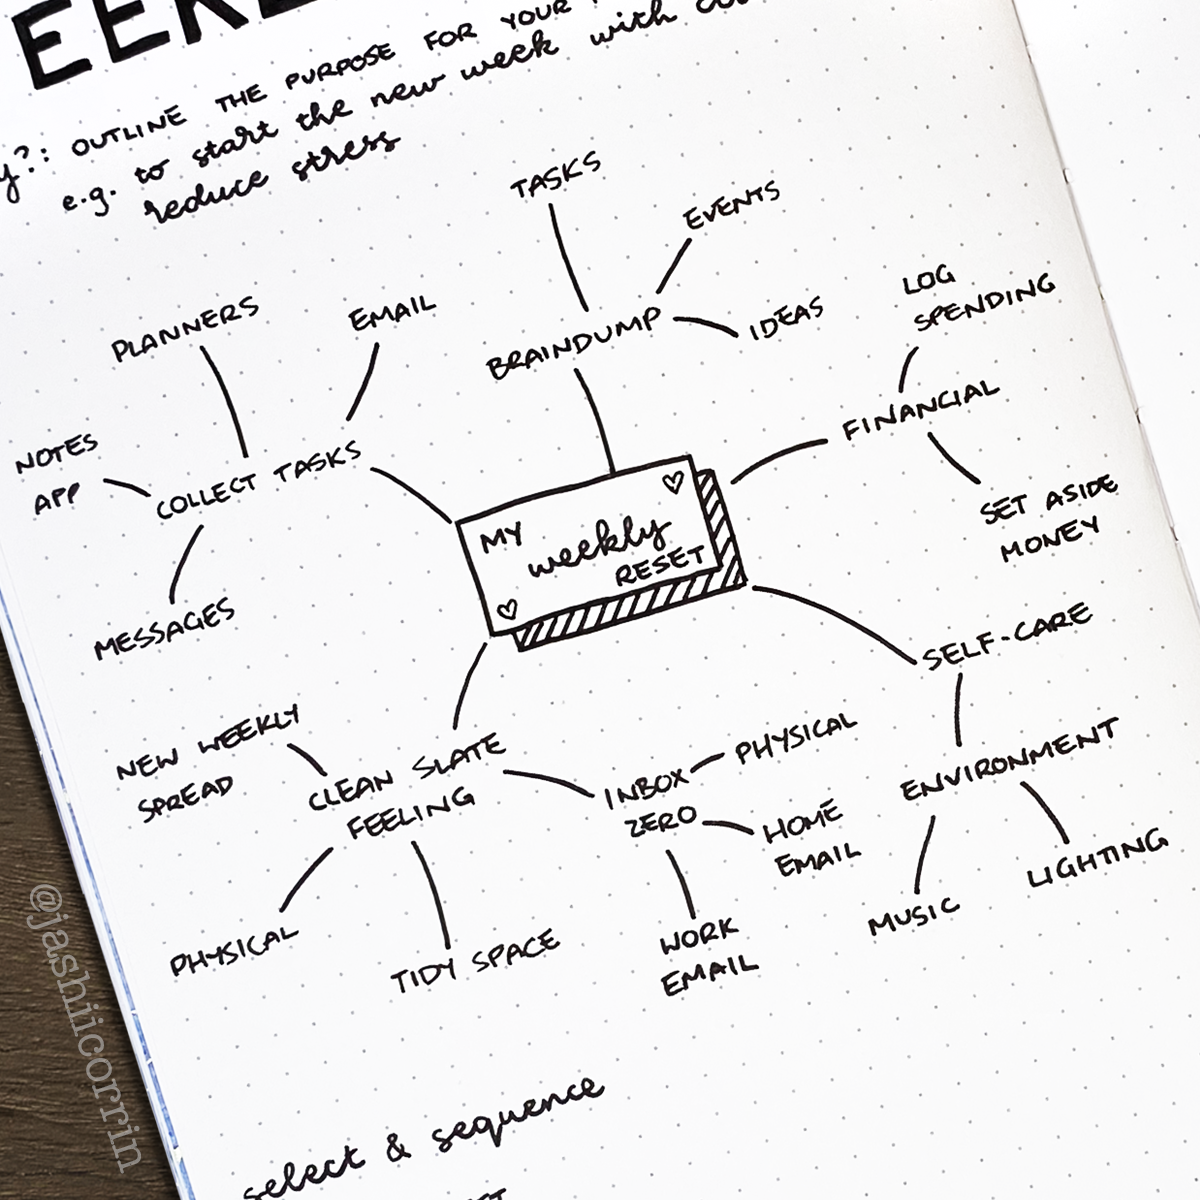 ?: OUTLINE THE PURPOSE FOR YOUR
e.g. to start the new week with
reduce stress
TASKS
EVENTS
IDEAS
BRAINDUMP
PLANNERS
EMAIL
NOTES
APP
COLLECT TASKS
MESSAGES
LOG
SPENDING
FINANCIAL
SET ASIDE
MONEY
MY
weekly
RESET
SELF-CARE
ENVIRONMENT
MUSIC
LIGHTING
NEW WEEKLY
SPREAD
CLEAN SLATE
FEELING
PHYSICAL
TIDY SPACE
INBOX
ZERO
PHYSICAL
HOME
EMAIL
WORK
EMAIL
select & sequence
@jashiicorrin